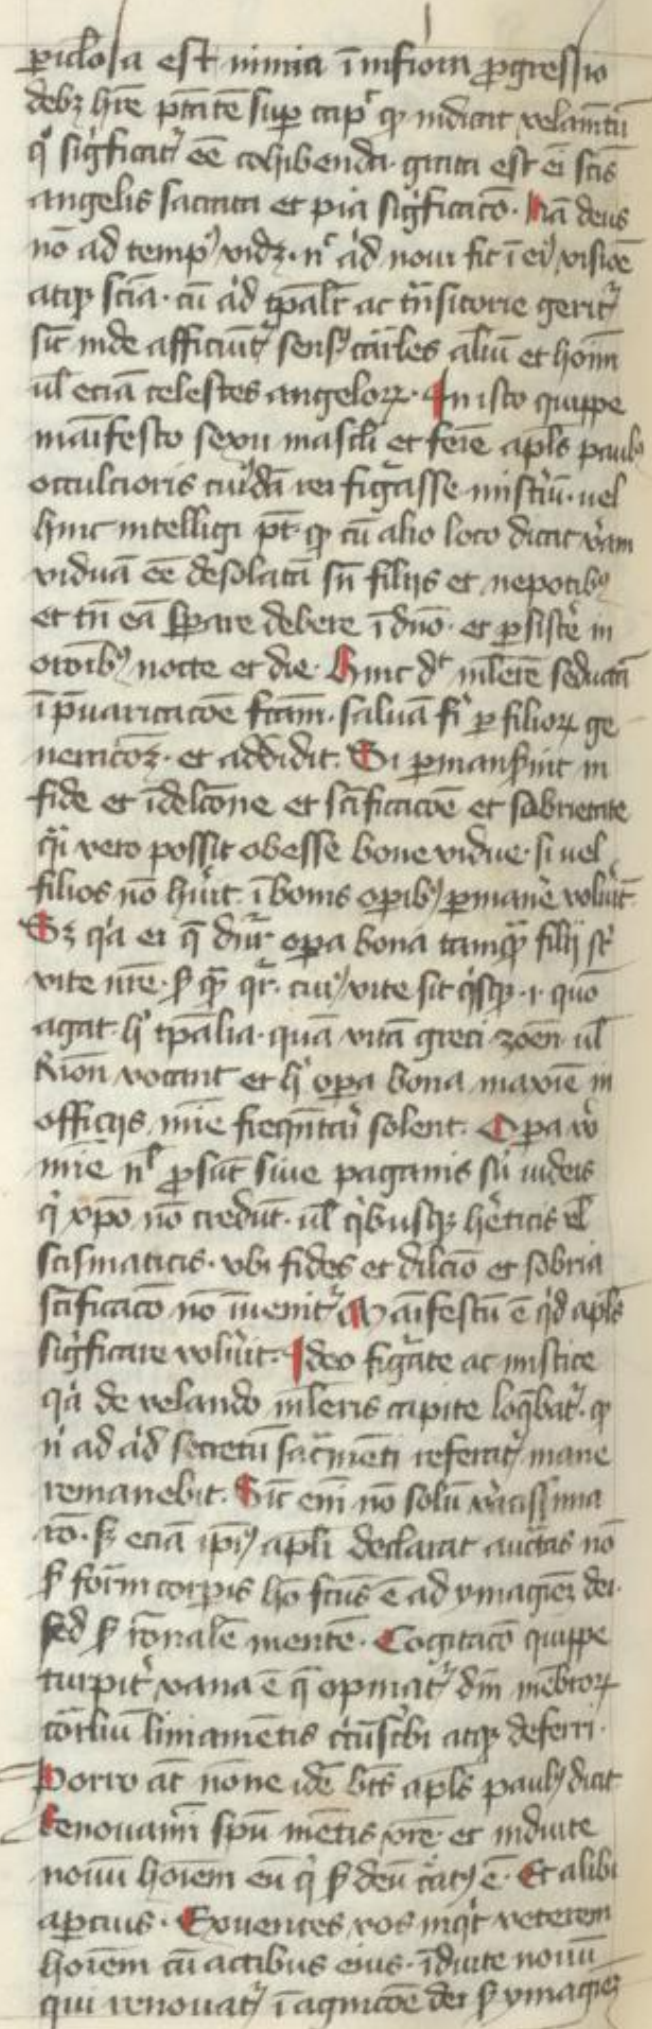 ꝑiclosa est nimia ī infioꝛa ꝓgressio
debꝫ hr̄e ptātē suꝑ cap̄ ꝙ indicat velam̄tū
q° sigͥficat᷑ eē cohibenda. grata est eī scīs
angelis sacrata et pia sigͥficac̄o. Nā deus
nō ad tempꝰ videt. nͨ aͥd noui fit ī eiꝰ visiōe
atqꝫ sciā. cū aͥd tp̄alit᷑ ac trāsitorie gerit᷑
sic̄ inde afficiūt᷑ sensꝰ carͣles aīaliū et hoīm
ul̄ eciā celestes angeloꝝ. In isto quippe
maīfesto sexu masc̄li et femīe apl̄s paulꝰ
occulcioris cuiꝰdā rei figᷓasse misteͥiū. uel
hinc intelligi pt̄. ꝙ cū alio loco dicat veram
viduā eē desolatā sn̄ filijs et nepotibꝰ
et tn̄ eā sꝑare debere ī dn̄o. et ꝑsisteͤ in
orōibꝰ nocte et die. hinc dͭ mlͥerē seductā
ī p̄uaricacōe fc̄am. saluā fiͥ ꝑ filioꝝ ge
neracōꝫ. et addidit. Si ꝑmanseͥint in
fide et ī dilcōne et sc̄ificacōe et sobrietate
qͣsi vero possit obesse bone vidue. si uel
filios nō hūit. ī bonis oꝑibꝰ ꝑmaneͤ voluͥt
Sꝫ qͥa ei q̄ dn̄r oꝑa bona tamqͣ filij st̄
vite nr̄e. ẜ qͣ qr̄. cuiꝰ vite sit qͥsqꝫ .i. quō
agat hͨ tp̄alia. quā vitā greci zoen ul̄
bion vocant et hͨ oꝑa bona maxīe in
officijs mīe freqn̄tari solent. Oꝑa vͦ
mīe nͥl ꝓsūt siue paganis siū iudeis
qͥ xpo nō credūt. ul̄ qͥbusqꝫ hͤeticis ul̄
scismaticis. vbi fides et dilcīo et sobria
sc̄ificacō nō īuenit᷑. Maīfestū ē qͥd apl̄s
sigͥficare voluͥit. Ideo figᷓate ac mistice
qͥa de velando mlͥeris capite loq̄bat᷑. ꝙ
nͥ ad aͥd secretū sacm̄enti referat᷑ mane
remanebit. Sic̄ enī nō solū vͤacissima
rō. sꝫ eciā ipīꝰ apl̄i declarat auctͣas nō
ẜ formͣ corꝑis hō fc̄us ē ad ymagīeꝫ dei.
sed ẜ rōnalē mentē. Cogitacō quippe
turpiter vana ē q̄ opinat᷑ dm̄ mēbroꝝ
corꝑaliū liniamētis cͥcūscͥbi atqꝫ deferri.
Porro at̄ nōne idē bt̄s apl̄s paulꝰ dicit
Renouamī spū mētis vr̄e et induite
nouū hoīem eū qͥ ẜ deū cͤatꝰ ē. Et alibi
aꝑcius. Exuentes vos inqͥt veterem
hoīem cū actibus eius. īduite nouū
qui renouat᷑ ī agnicōe dei ẜ ymagīeꝫ